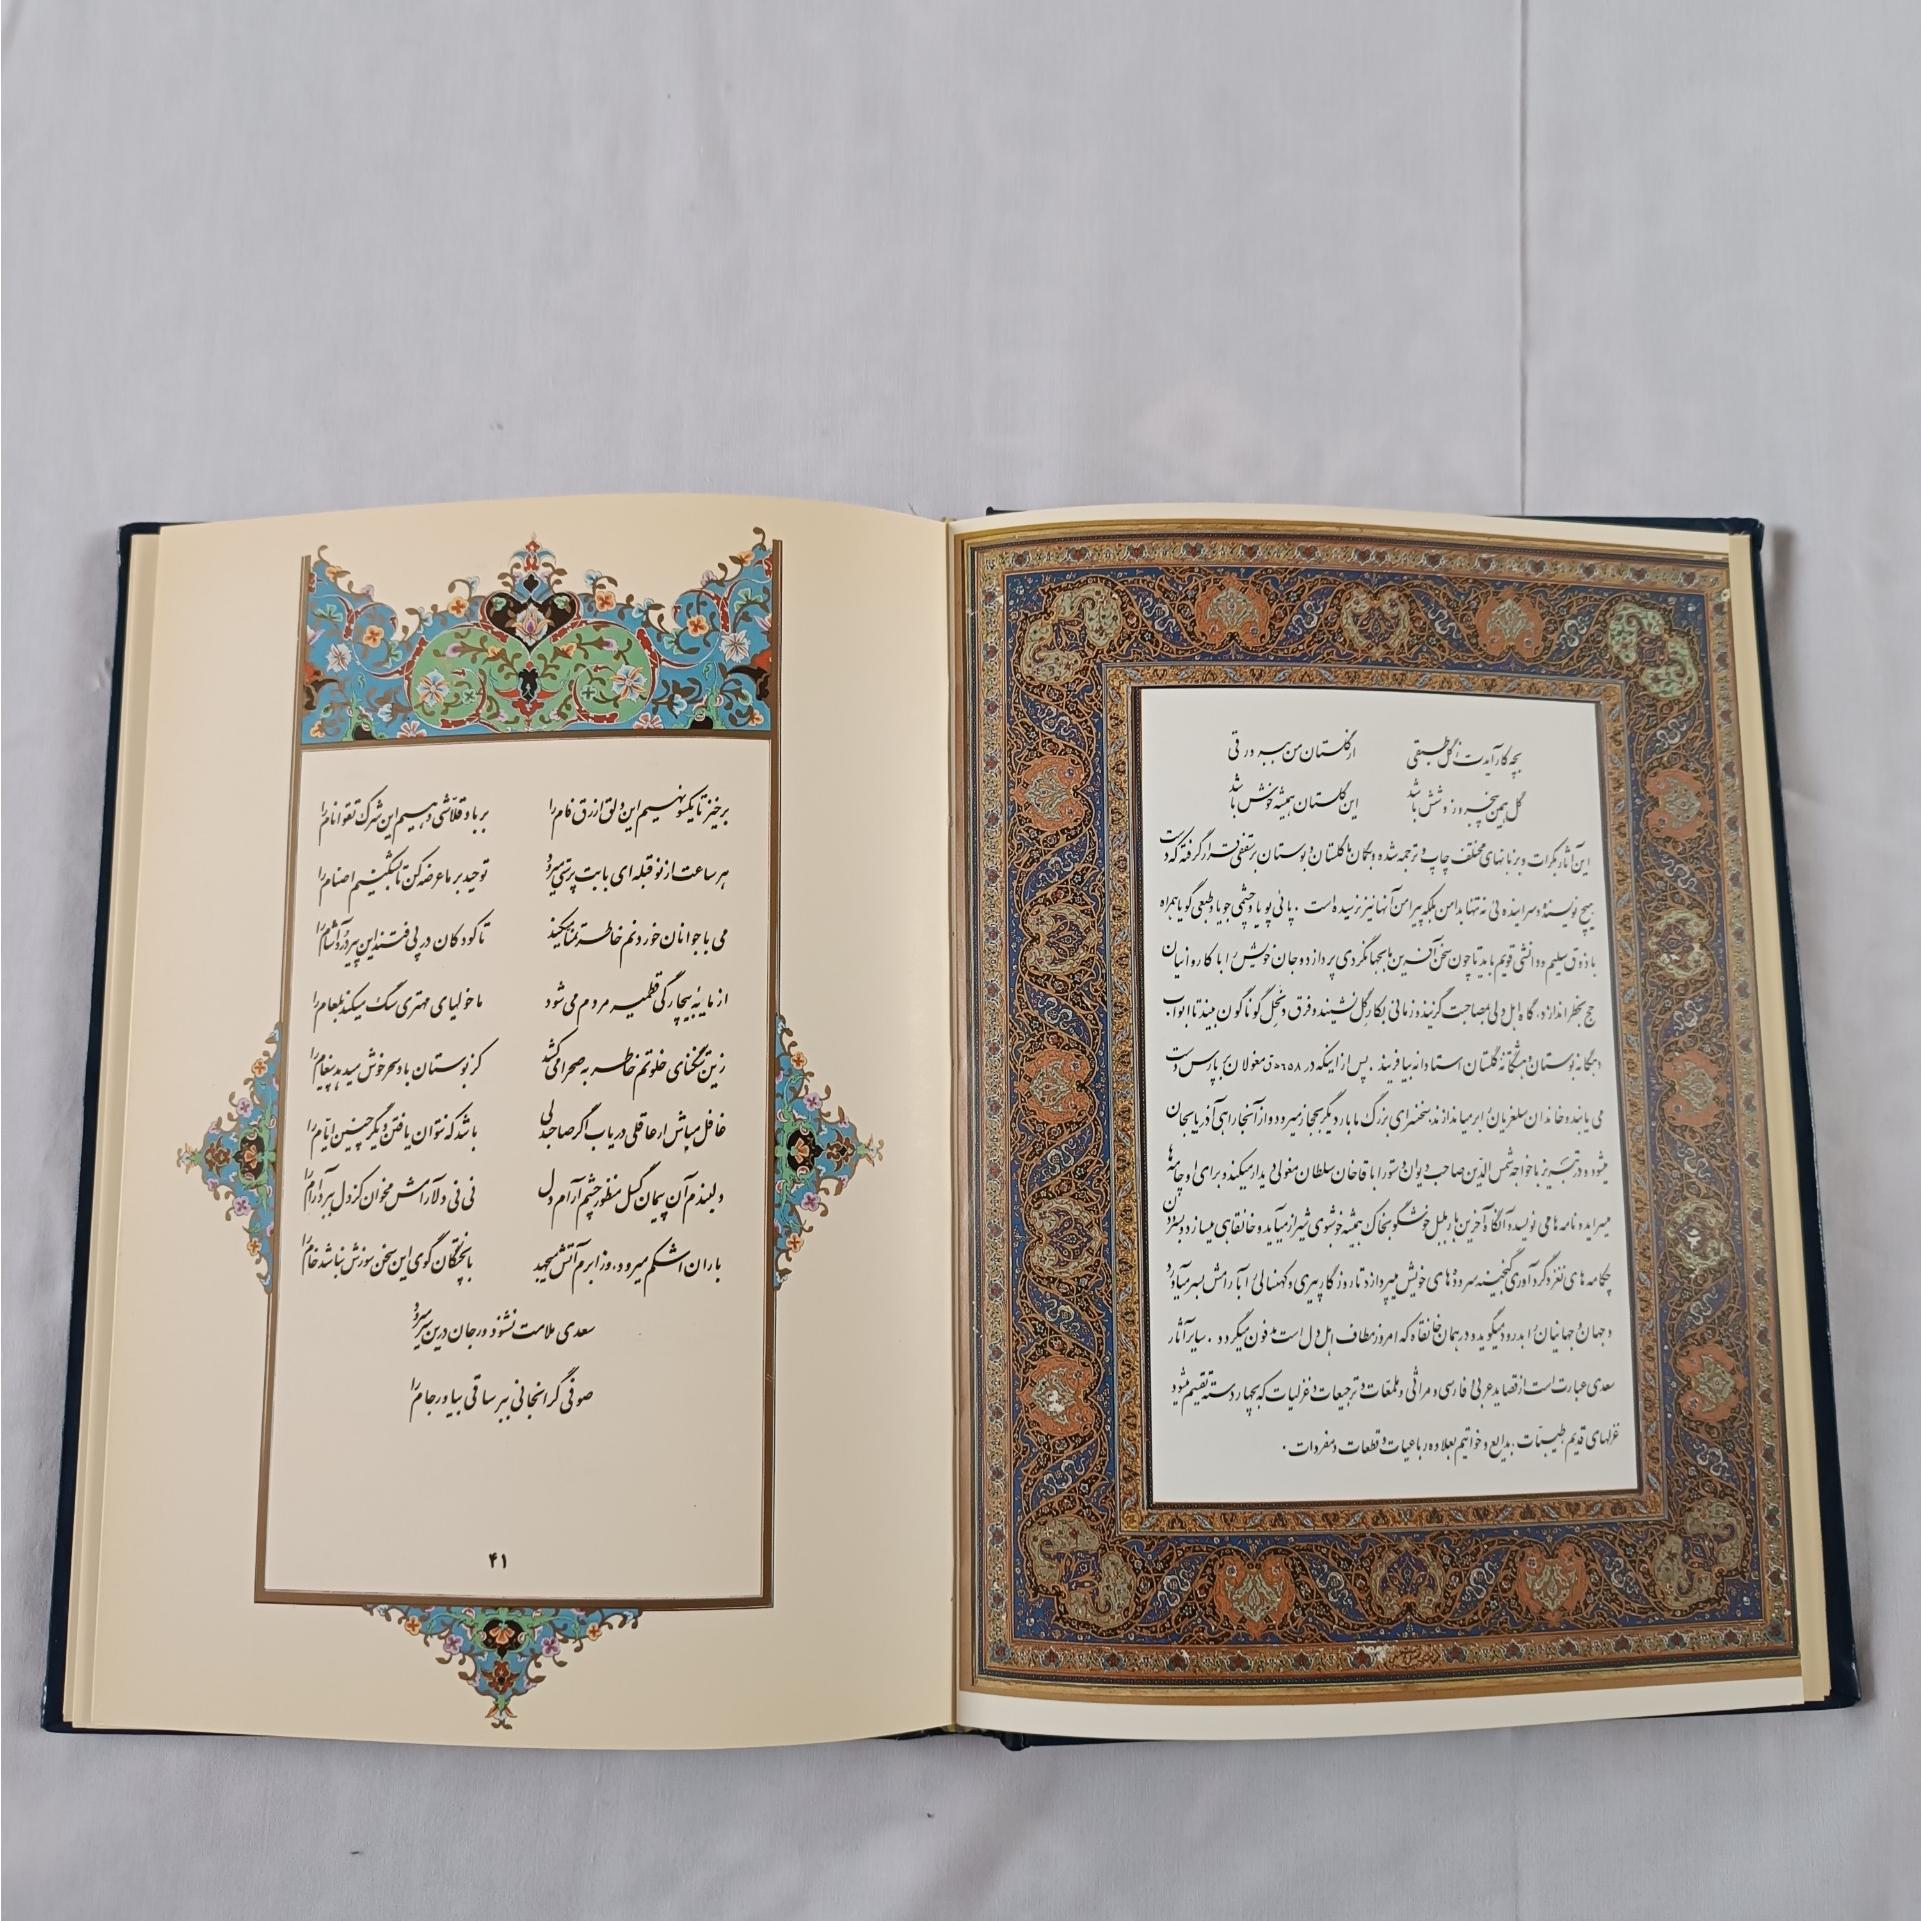 بچه کار آیدت ز گل طبقی از گلستان من ببر ورقی
گل همین پنجروز و شش باشد این گلستان همیشه خوش باشد
این آثار بکرات و بزبانهای مختلف چاپ و ترجمه شده و بگمان ما گلستان و بوستان بر سقفی قرار گرفته که دست
هیچ نویسنده و سراینده ئی نه تنها بدامن بلکه پیرامن آنها نیز نرسیده است . پائی پویا و چشمی جویا و طبعی گویا همراه
با ذوق سلیم و دانشی قویم باید تا چون سخن آفرین ما بجهانگردی پردازد و جان خویش را با کاروانیان
حج بخطر اندازد، گاه اهل دلی بمصاحبت گزیند و زمانی بکار گل نشیند و فرق و نحل گوناگون بیند تا ابواب
دهگانه بوستان و هشتگانه گلستان استادانه بیافریند . پس از اینکه در ۶۵۸ ه ق مغولان بر پارس دست
می یابند و خاندان سلغریان را بر میاندازند، سخنسرای بزرگ ما بار دیگر بحجاز میرود و از آنجا راهی آذربایجان
میشود و در تبریز با خواجه شمس الدین صاحب دیوان دستور اباقاخان سلطان مغولی دیدار میکند و برای او چامه ها
میسراید و نامه ها می نویسد و آنگاه آخرین بار بلبل خوشگو بخاک همیشه خوشبوی شیراز میآید و خانقاهی میسازد و بسرودن
چکامه های نغز و گردآوری گنجینه سروده های خویش میپردازد تا روزگار پیری و کهنسالی را بآرامش بسر میآورد
و جهان و جهانیان را بدرود میگوید و در همان خانقاه که امروز مطاف اهل دل است مدفون میگردد . سایر آثار
سعدی عبارت است از قصاید عربی و فارسی و مراثی و ملمعات و ترجیعات و غزلیات که بچهار دسته تقسیم میشود
غزلهای قدیم، طیبات، بدایع و خواتیم بعلاوه رباعیات و قطعات و مفردات .
برخیز تا یکسو نهیم این دلق ازرق فام را بر باد قلاشی دهیم این شرک تقوا نام را
هر ساعت از نو قبله ای با بت پرستی میرود توحید بر ما عرضه کن تا بشکنیم اصنام را
می با جوانان خوردنم خاطر تمنا میکند تا کودکان در پی فتند این پیر درد آشام را
از مایهٔ بیچارگی قطمیر مردم می شود ماخولیای مهتری سگ میکند بلعام را
زین تنگنای خلوتم خاطر به صحرا می کشد کز بوستان باد سحر خوش میدهد پیغام را
غافل مباش ار عاقلی دریاب اگر صاحبدلی باشد که نتوان یافتن دیگر چنین ایام را
دلبندم آن پیمان گسل منظور چشم آرام دل نی نی دلآرامش مخوان کز دل ببرد آرام را
باران اشکم میرود، وز ابرم آتش میجهد با پختگان گوی این سخن سوزش نباشد خام را
سعدی ملامت نشنود ور جان درین سر میرود
صوفی گرانجانی ببر ساقی بیاور جام را
۴۱